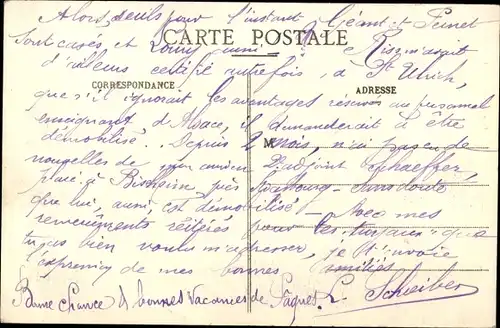 Alors, seuls pour l'instant Géant et Peinet
sont casés et Romy aussi ? Risz m'avait
CARTE POSTALE
d'ailleurs certifié autrefois, à St Ulrich,
CORRESPONDANCE
ADRESSE
que s'il ignorait les avantages réservés au personnel
enseignant d'Alsace, il demanderait à être
démobilisé. Depuis 2 mois, n'ai pas de
nouvelles de mon ancien adjoint Schaeffer,
placé à Bischheim, près Strasbourg - Sans doute
que lui, aussi est démobilisé - Avec mes
remerciements réitérés pour les travaux que
tu as bien voulu m'adresser, je t'envoie
l'expression de mes bonnes amitiés
Bonne chance & bonnes vacances de Pâques. L. Scheiber